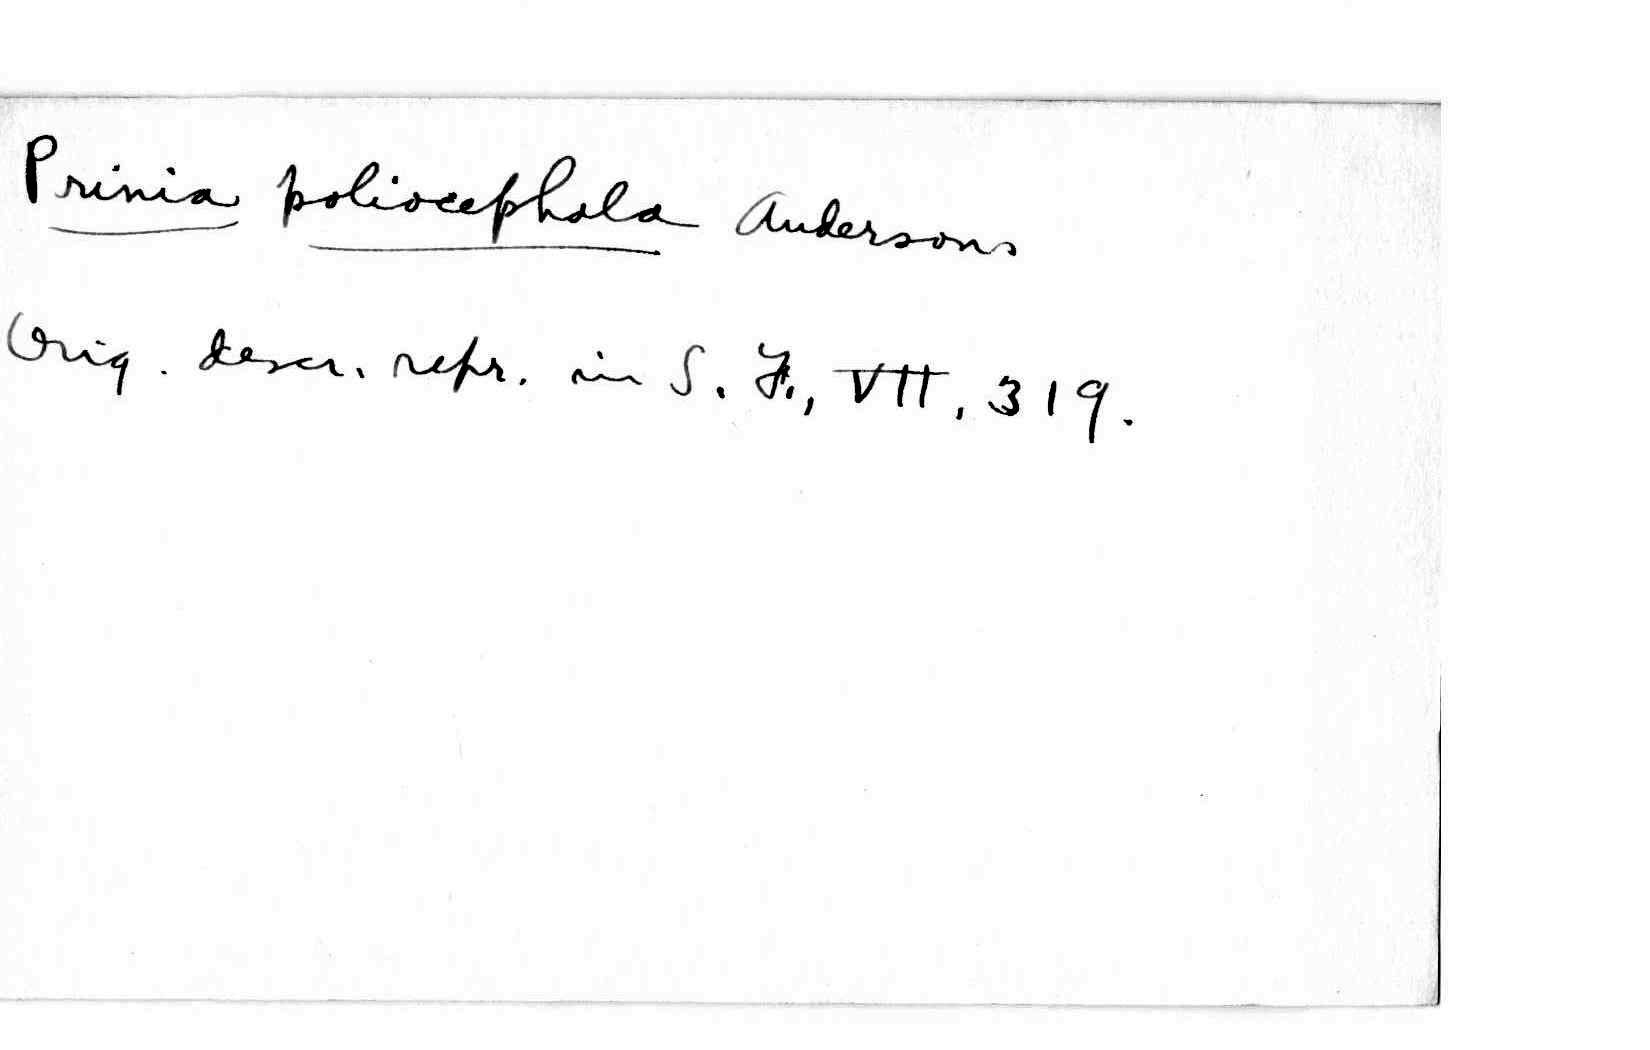 Prinia poliocephala Anderson
Orig. descr. repr. in S. F., VII, 319.